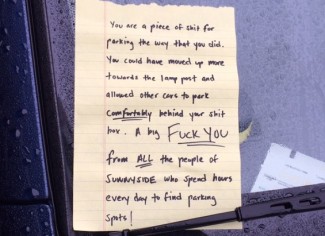 You are a piece of shit for
parking the way that you did.
You could have moved up more
towards the lamp post and
allowed other cars to park
comfortably behind your shit
box. A big FUCK YOU
from ALL the people of
SUNNYSIDE who spend hours
every day to find parking
spots!